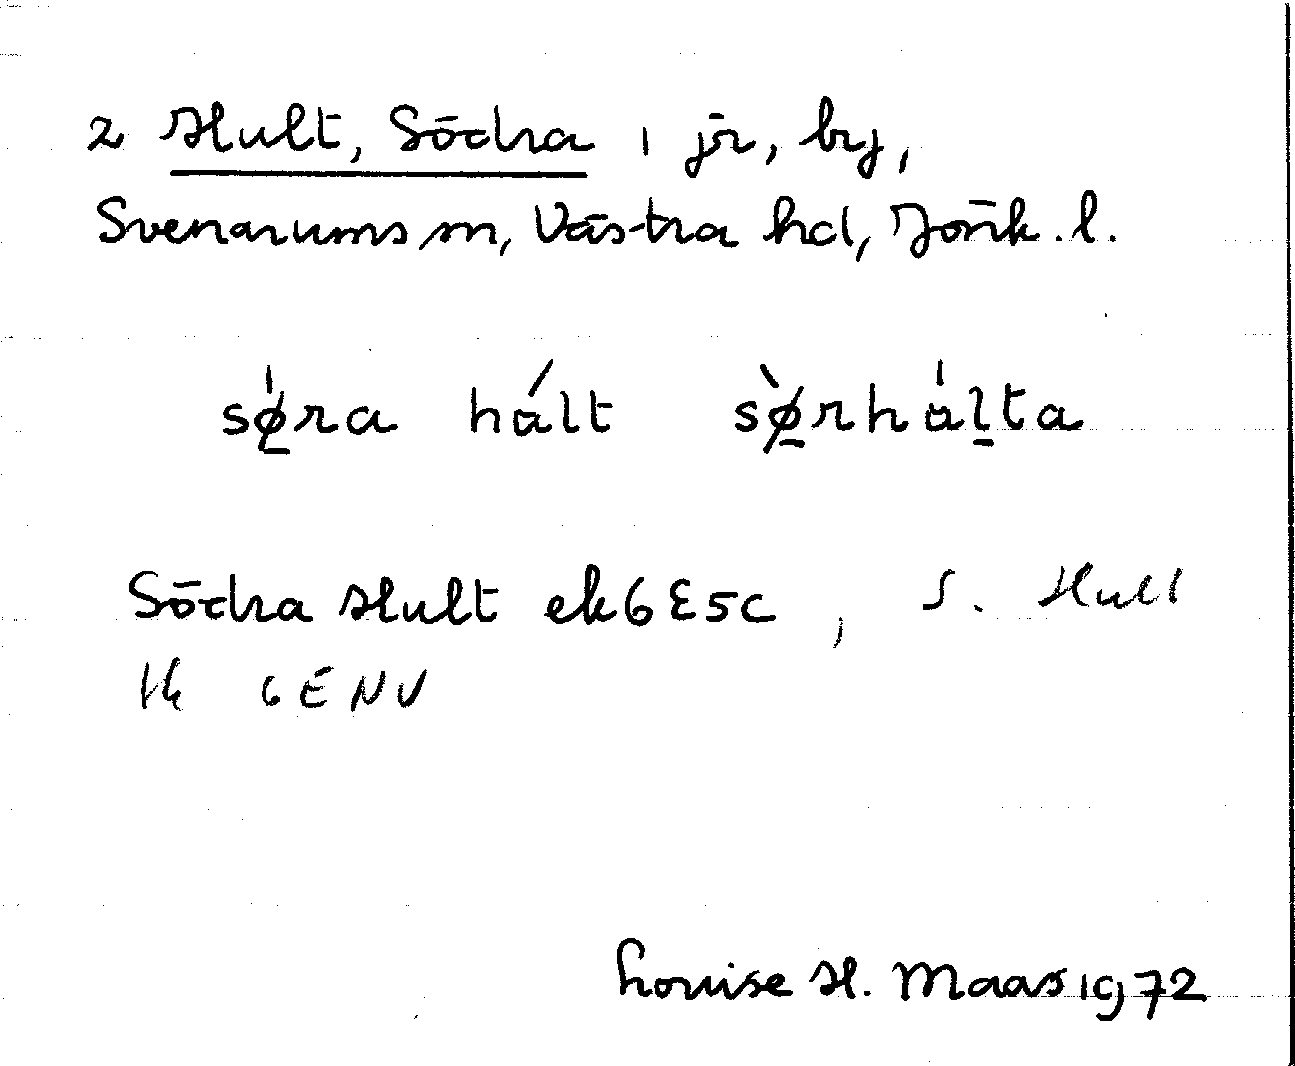 2 Hult, Södra 1 jr, by,
Svenarums sn, Västra hd, Jönk. l.
sǿ̱ra hált sø̱̀rhȧḻta
Södra Hult ek6E5c, S. Hult
tk 6E NV
Louise H. Maas 1972